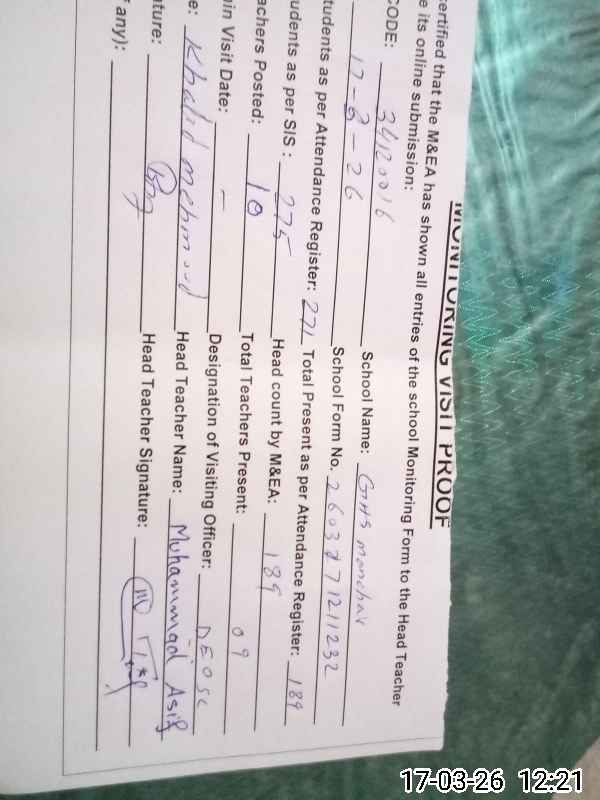 MONITORING VISIT PROOF
certified that the M&EA has shown all entries of the school Monitoring Form to the Head Teacher
e its online submission:
CODE: 34120016 School Name: GHS
17-3-26 School Form No. 2603171211232
tudents as per Attendance Register: 271 Total Present as per Attendance Register: 189
udents as per SIS: 275 Head count by M&EA: 189
achers Posted: 10 Total Teachers Present: 09
in Visit Date: – Designation of Visiting Officer: DEOSE
e: Khalid mehmood Head Teacher Name: Muhammad Asif
ature: Head Teacher Signature:
any):
17-03-26 12:21